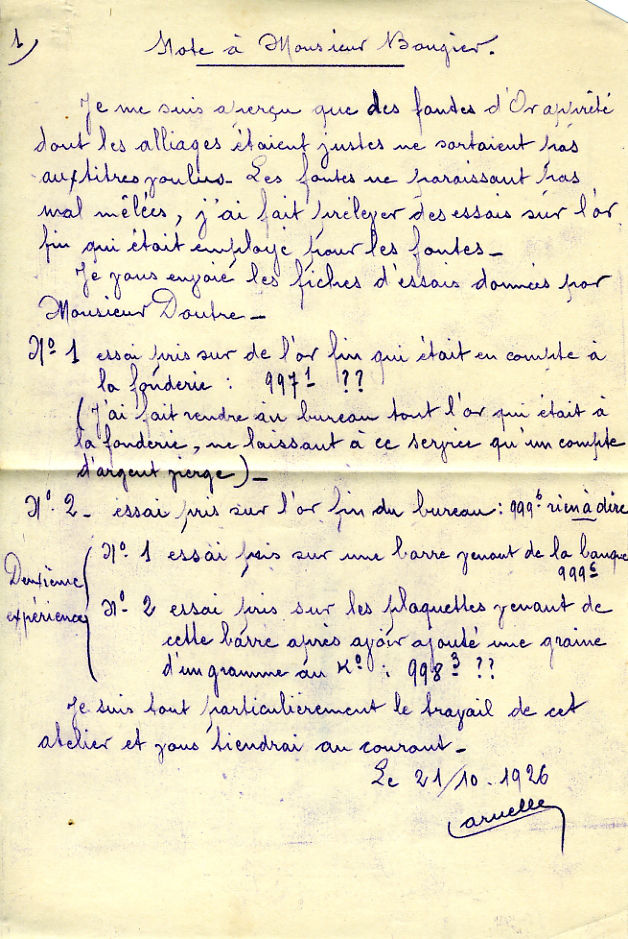 1)
Note à Monsieur Bougier.
Je me suis aperçu que des fontes d'Or apprêté
dont les alliages étaient justes ne sortaient pas
aux titres voulus_ Les fontes ne paraissant pas
mal mêlées, j'ai fait prélever des essais sur l'or
fin qui était employé pour les fontes_
Je vous envoie les fiches d'essais données par
Monsieur Doutre_
Nº 1 essai pris sur de l'or fin qui était en compte à
la fonderie : 997 1 ??
(J'ai fait rendre au bureau tout l'or qui était à
la fonderie, ne laissant à ce service qu'un compte
d'argent vierge)_
Nº 2_ essai pris sur l'or fin du bureau : 999 6 rien à dire
Deuxième expérience
Nº 1 essai pris sur une barre venant de la banque
999 6
Nº 2 essai pris sur les plaquettes venant de
cette barre après avoir ajouté une graine
d'un gramme au Kº : 998 3 ??
Je suis tout particulièrement le travail de cet
atelier et vous tiendrai au courant_
Le 21/10.1926